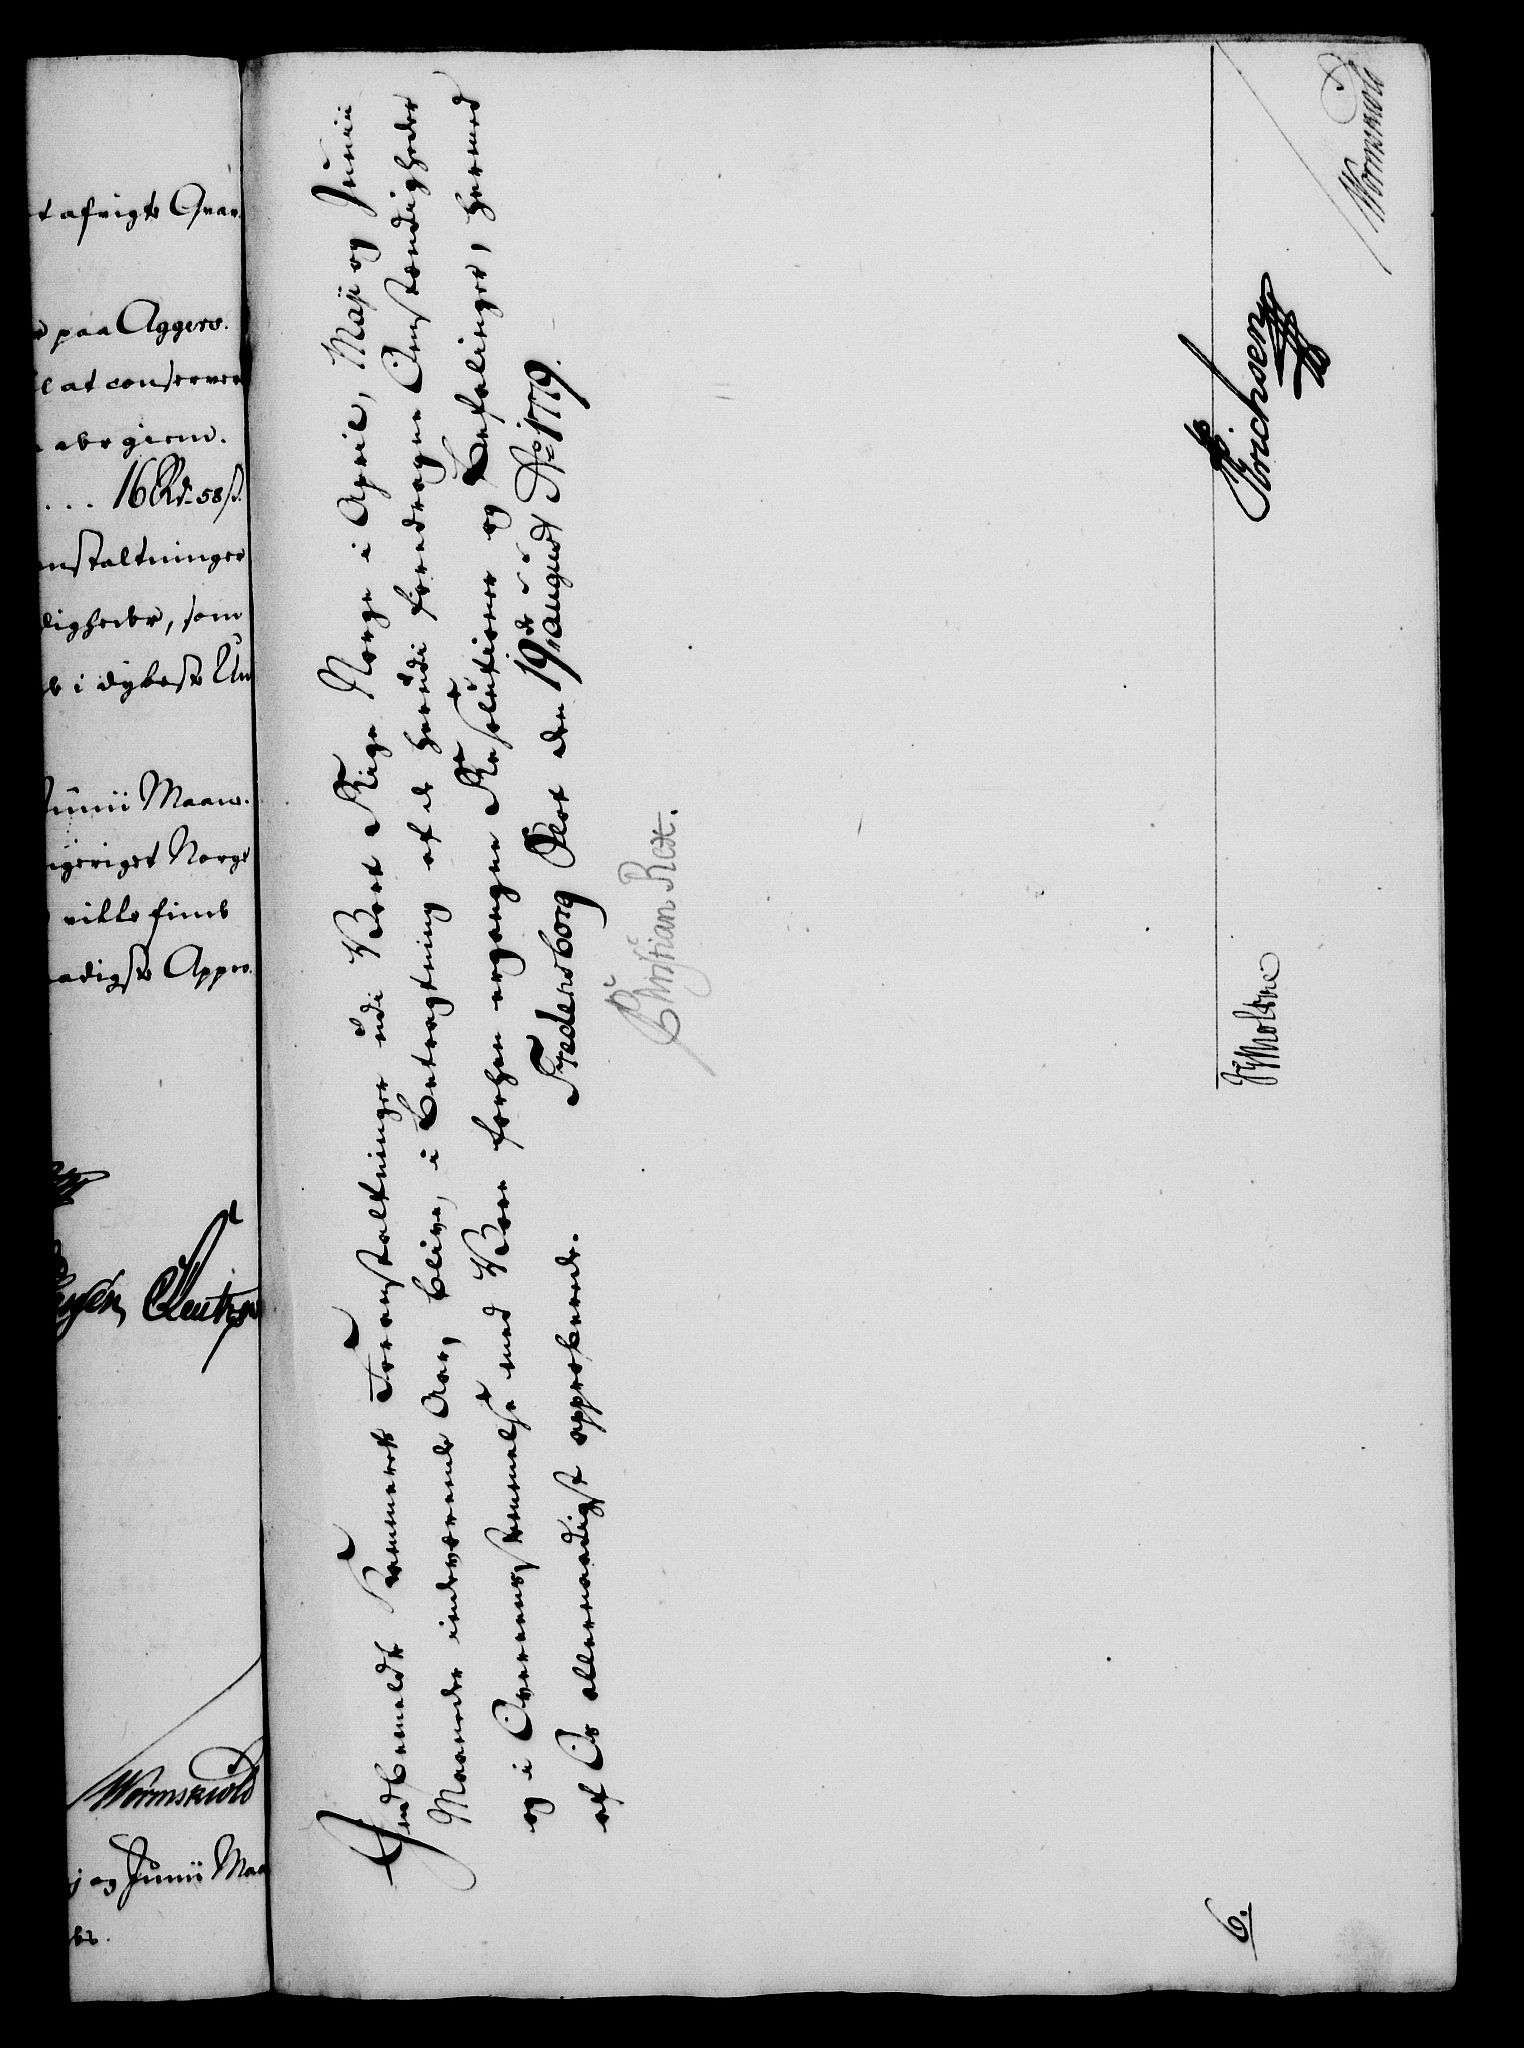 t afvigte Qvar-
paa Aggers-
at conserver
16 Rd. 58 ß.
nstaltninger
digheder, som
i dybeste Un
Junii Maan-
geriget Norge
ville finde
aadigste Appro-
Wormskiold
j og Junii Maa
Indbemeldte Kammerets Foranstaltninger udi Vort Rige Norge i April, Maji og Junii
Maaneder indeværende Aar, blive, i Betragtning af de herudi foredragne Omstændigheder
og i Overensstemmelse med Vore forhen ergangne Resolutioner og Befalinger, hermed
af Os allernaadigst approberede. Fredensborg Slot den 19de August Ao. 1779.
Christian Rex.
Moltke
Erichsen
Wormskiold
6.